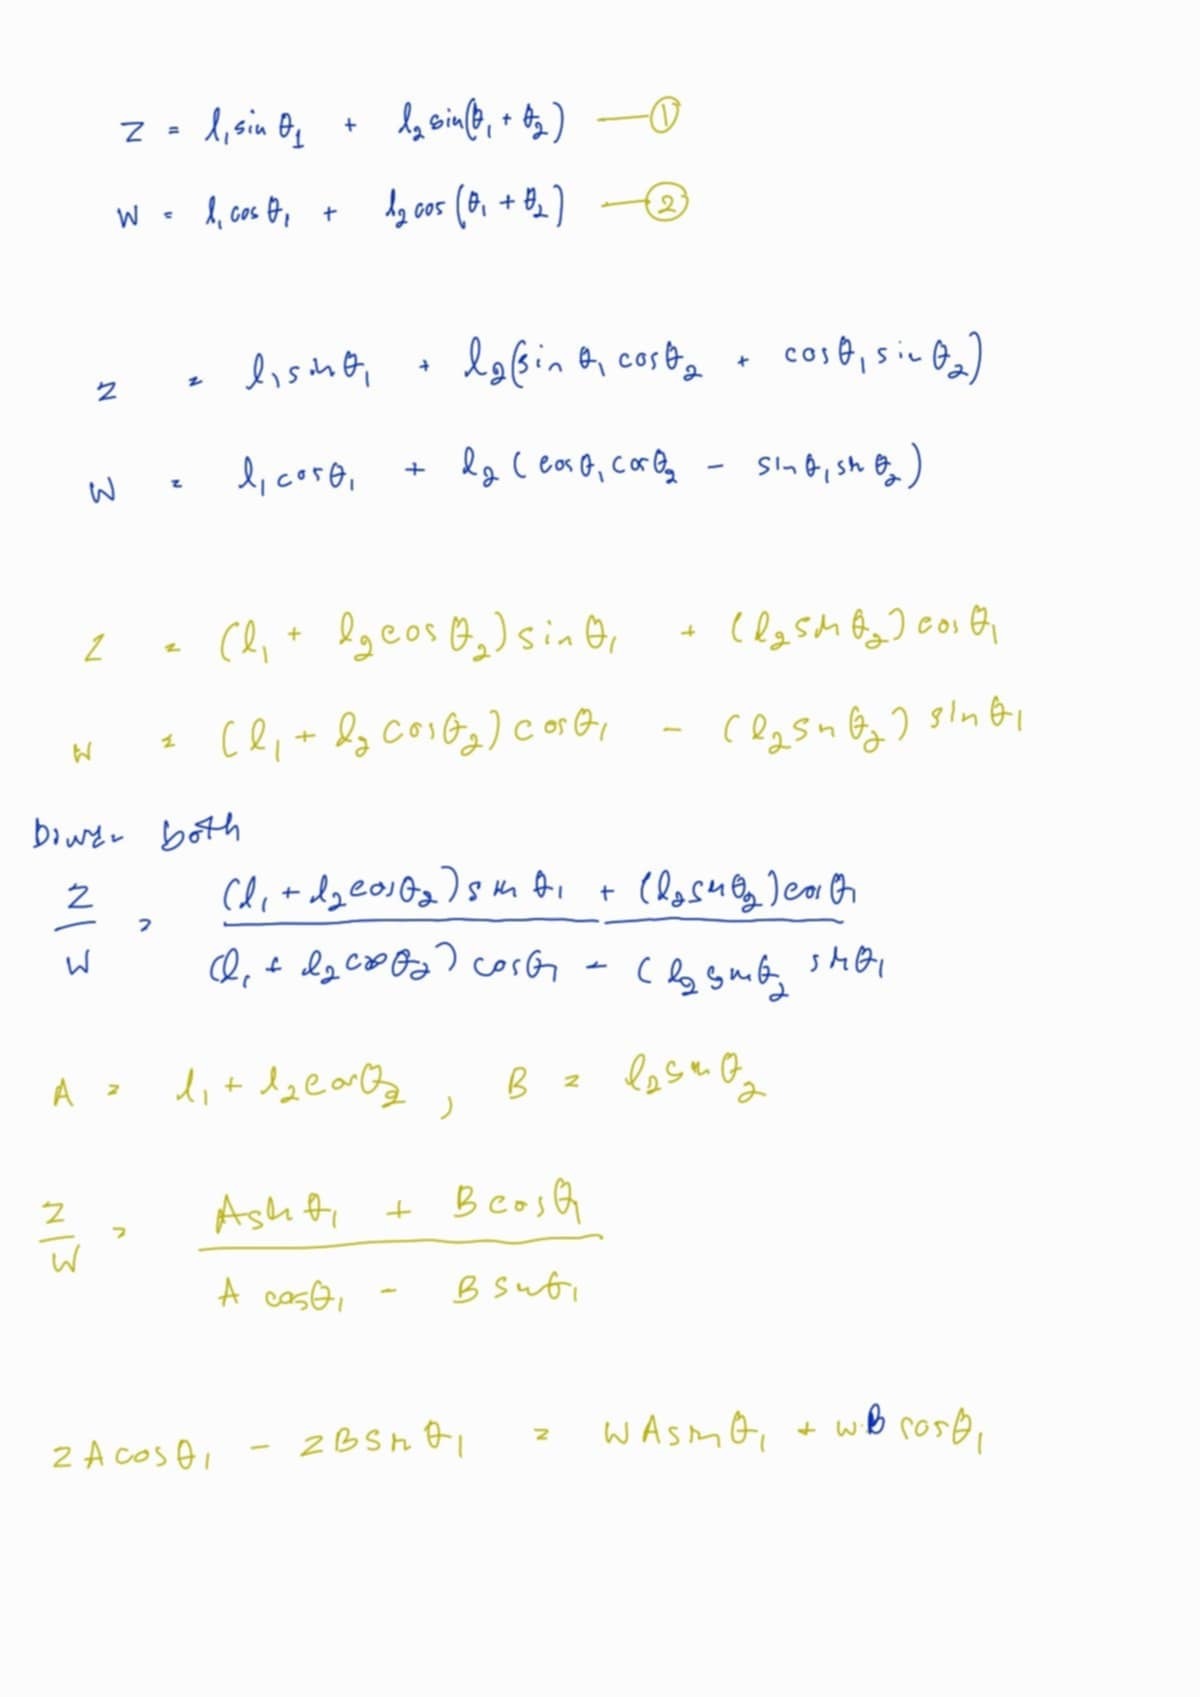 z = l₁sin θ₁ + l₂ sin(θ₁ + θ₂) — ①
W = l₁ cos θ₁ + l₂ cos (θ₁ + θ₂) — ②
z = l₁sinθ₁ + l₂(sin θ₁ cosθ₂ + cosθ₁ sin θ₂)
W = l₁cosθ₁ + l₂ (cosθ₁ cosθ₂ - sinθ₁ sin θ₂)
z = (l₁ + l₂cos θ₂) sin θ₁ + (l₂ sin θ₂) cos θ₁
W = (l₁ + l₂ cosθ₂) cosθ₁ - (l₂ sin θ₂) sin θ₁
both
z/W = (l₁ + l₂cosθ₂) sin θ₁ + (l₂sinθ₂) cosθ₁ / (l₁ + l₂ cosθ₂) cosθ₁ - (l₂ sinθ₂ sinθ₁
A = l₁ + l₂cosθ₂ , B = l₂sin θ₂
z/W = A sin θ₁ + B cosθ₁ / A cosθ₁ - B sinθ₁
z A cos θ₁ - z B sin θ₁ = W A sin θ₁ + W.B cosθ₁